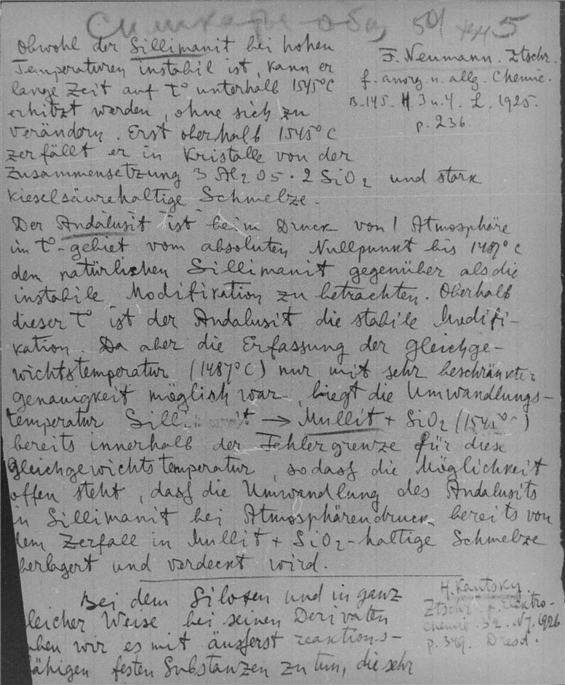 501 5
Obwohl der Sillimanit bei hohen
Temperaturen instabil ist, kann er
lange Zeit auf t° unterhalb 1545°C
erhitzt werden, ohne sich zu
verändern. Erst oberhalb 1545°C
zerfällt er in Kristalle von der
Zusammensetzung 3 Al2O3 · 2 SiO2 und stark
kieselsäurehaltige Schmelze.
F. Neumann. Ztschr.
f. anorg. u. allg. Chemie.
B. 145. H 3 u. 4. L. 1925.
p. 236.
Der Andalusit ist beim Druck von 1 Atmosphäre
im t°-gebiet vom absoluten Nullpunkt bis 1487°C
den natürlichen Sillimanit gegenüber als die
instabile Modifikation zu betrachten. Oberhalb
dieser t° ist der Andalusit die stabile Modifi-
kation. Da aber die Erfassung der Gleichge-
wichtstemperatur (1487°C) nur mit sehr beschränkter
genauigkeit möglich war, liegt die Umwandlungs-
temperatur Sill it → Mullit + SiO2 (1545°)
bereits innerhalb der Fehlergrenze für diese
Gleichgewichtstemperatur, so dass die Möglichkeit
offen steht, dass die Umwandlung des Andalusits
in Sillimanit bei Atmosphärendruck bereits von
dem Zerfall in Mullit + SiO2-haltige Schmelze
berlagert und verdeckt wird.
Bei dem Siloxen und in ganz
leicher Weise bei seinen Derivaten
aben wir es mit äußerst reaktions-
ähigen festen Substanzen zu tun, die sehr
H. Kautsky
Ztschr. f. Elektro-
chemie. 32. N 7. 1926
p. 349. Dresd.